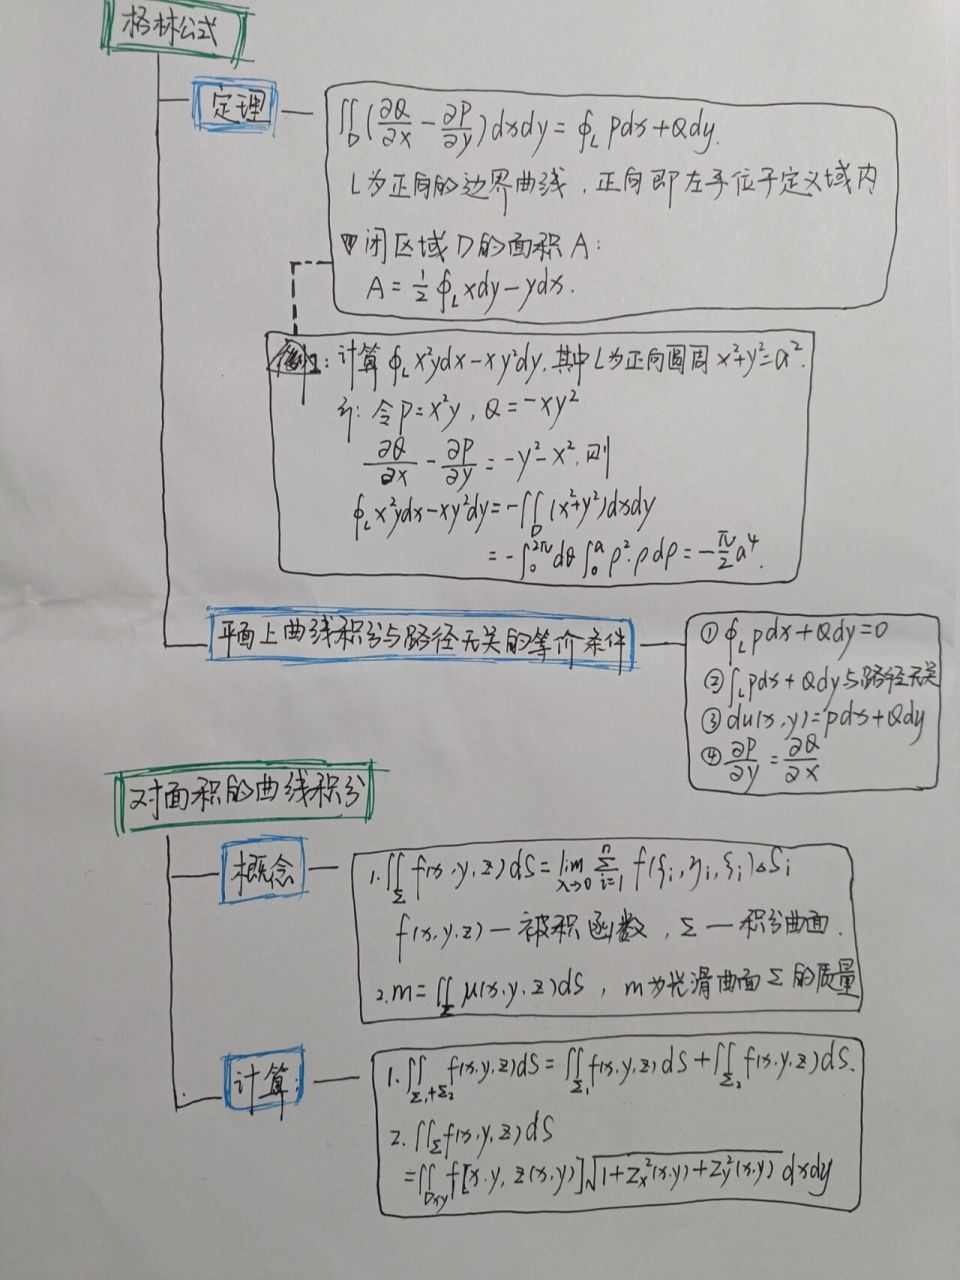 格林公式
定理
∬_D (∂Q/∂x - ∂P/∂y) dxdy = ∮_L Pdx + Qdy.
L为正向的边界曲线，正向即左手位于定义域内
▽闭区域D的面积A：
A = 1/2 ∮_L xdy - ydx.
例1：计算 ∮_L x²ydx - xy²dy, 其中L为正向圆周 x²+y²=a².
令P=x²y, Q=-xy²
∂Q/∂x - ∂P/∂y = -y² - x², 则
∮_L x²ydx - xy²dy = -∬_D (x²+y²)dxdy
= -∫₀^{2π} dθ ∫₀^a ρ²·ρdρ = -π/2 a⁴.
平面上曲线积分与路径无关的等价条件
① ∮_L Pdx + Qdy = 0
② ∫_L Pdx + Qdy 与路径无关
③ du(x,y) = Pdx + Qdy
④ ∂P/∂y = ∂Q/∂x
对面积的曲线积分
概念
1. ∬_Σ f(x,y,z)dS = lim_{λ→0} Σ_{i=1}^n f(ξi, ηi, ξi)ΔSi
f(x,y,z) — 被积函数，Σ — 积分曲面.
2. m = ∬_Σ μ(x,y,z)dS, m为光滑曲面Σ的质量
计算：
1. ∬_{Σ₁+Σ₂} f(x,y,z)dS = ∬_{Σ₁} f(x,y,z)dS + ∬_{Σ₂} f(x,y,z)dS.
2. ∬_Σ f(x,y,z)dS
= ∬_{Dxy} f[x,y,z(x,y)]√(1+Zx²(x,y)+Zy²(x,y)) dxdy